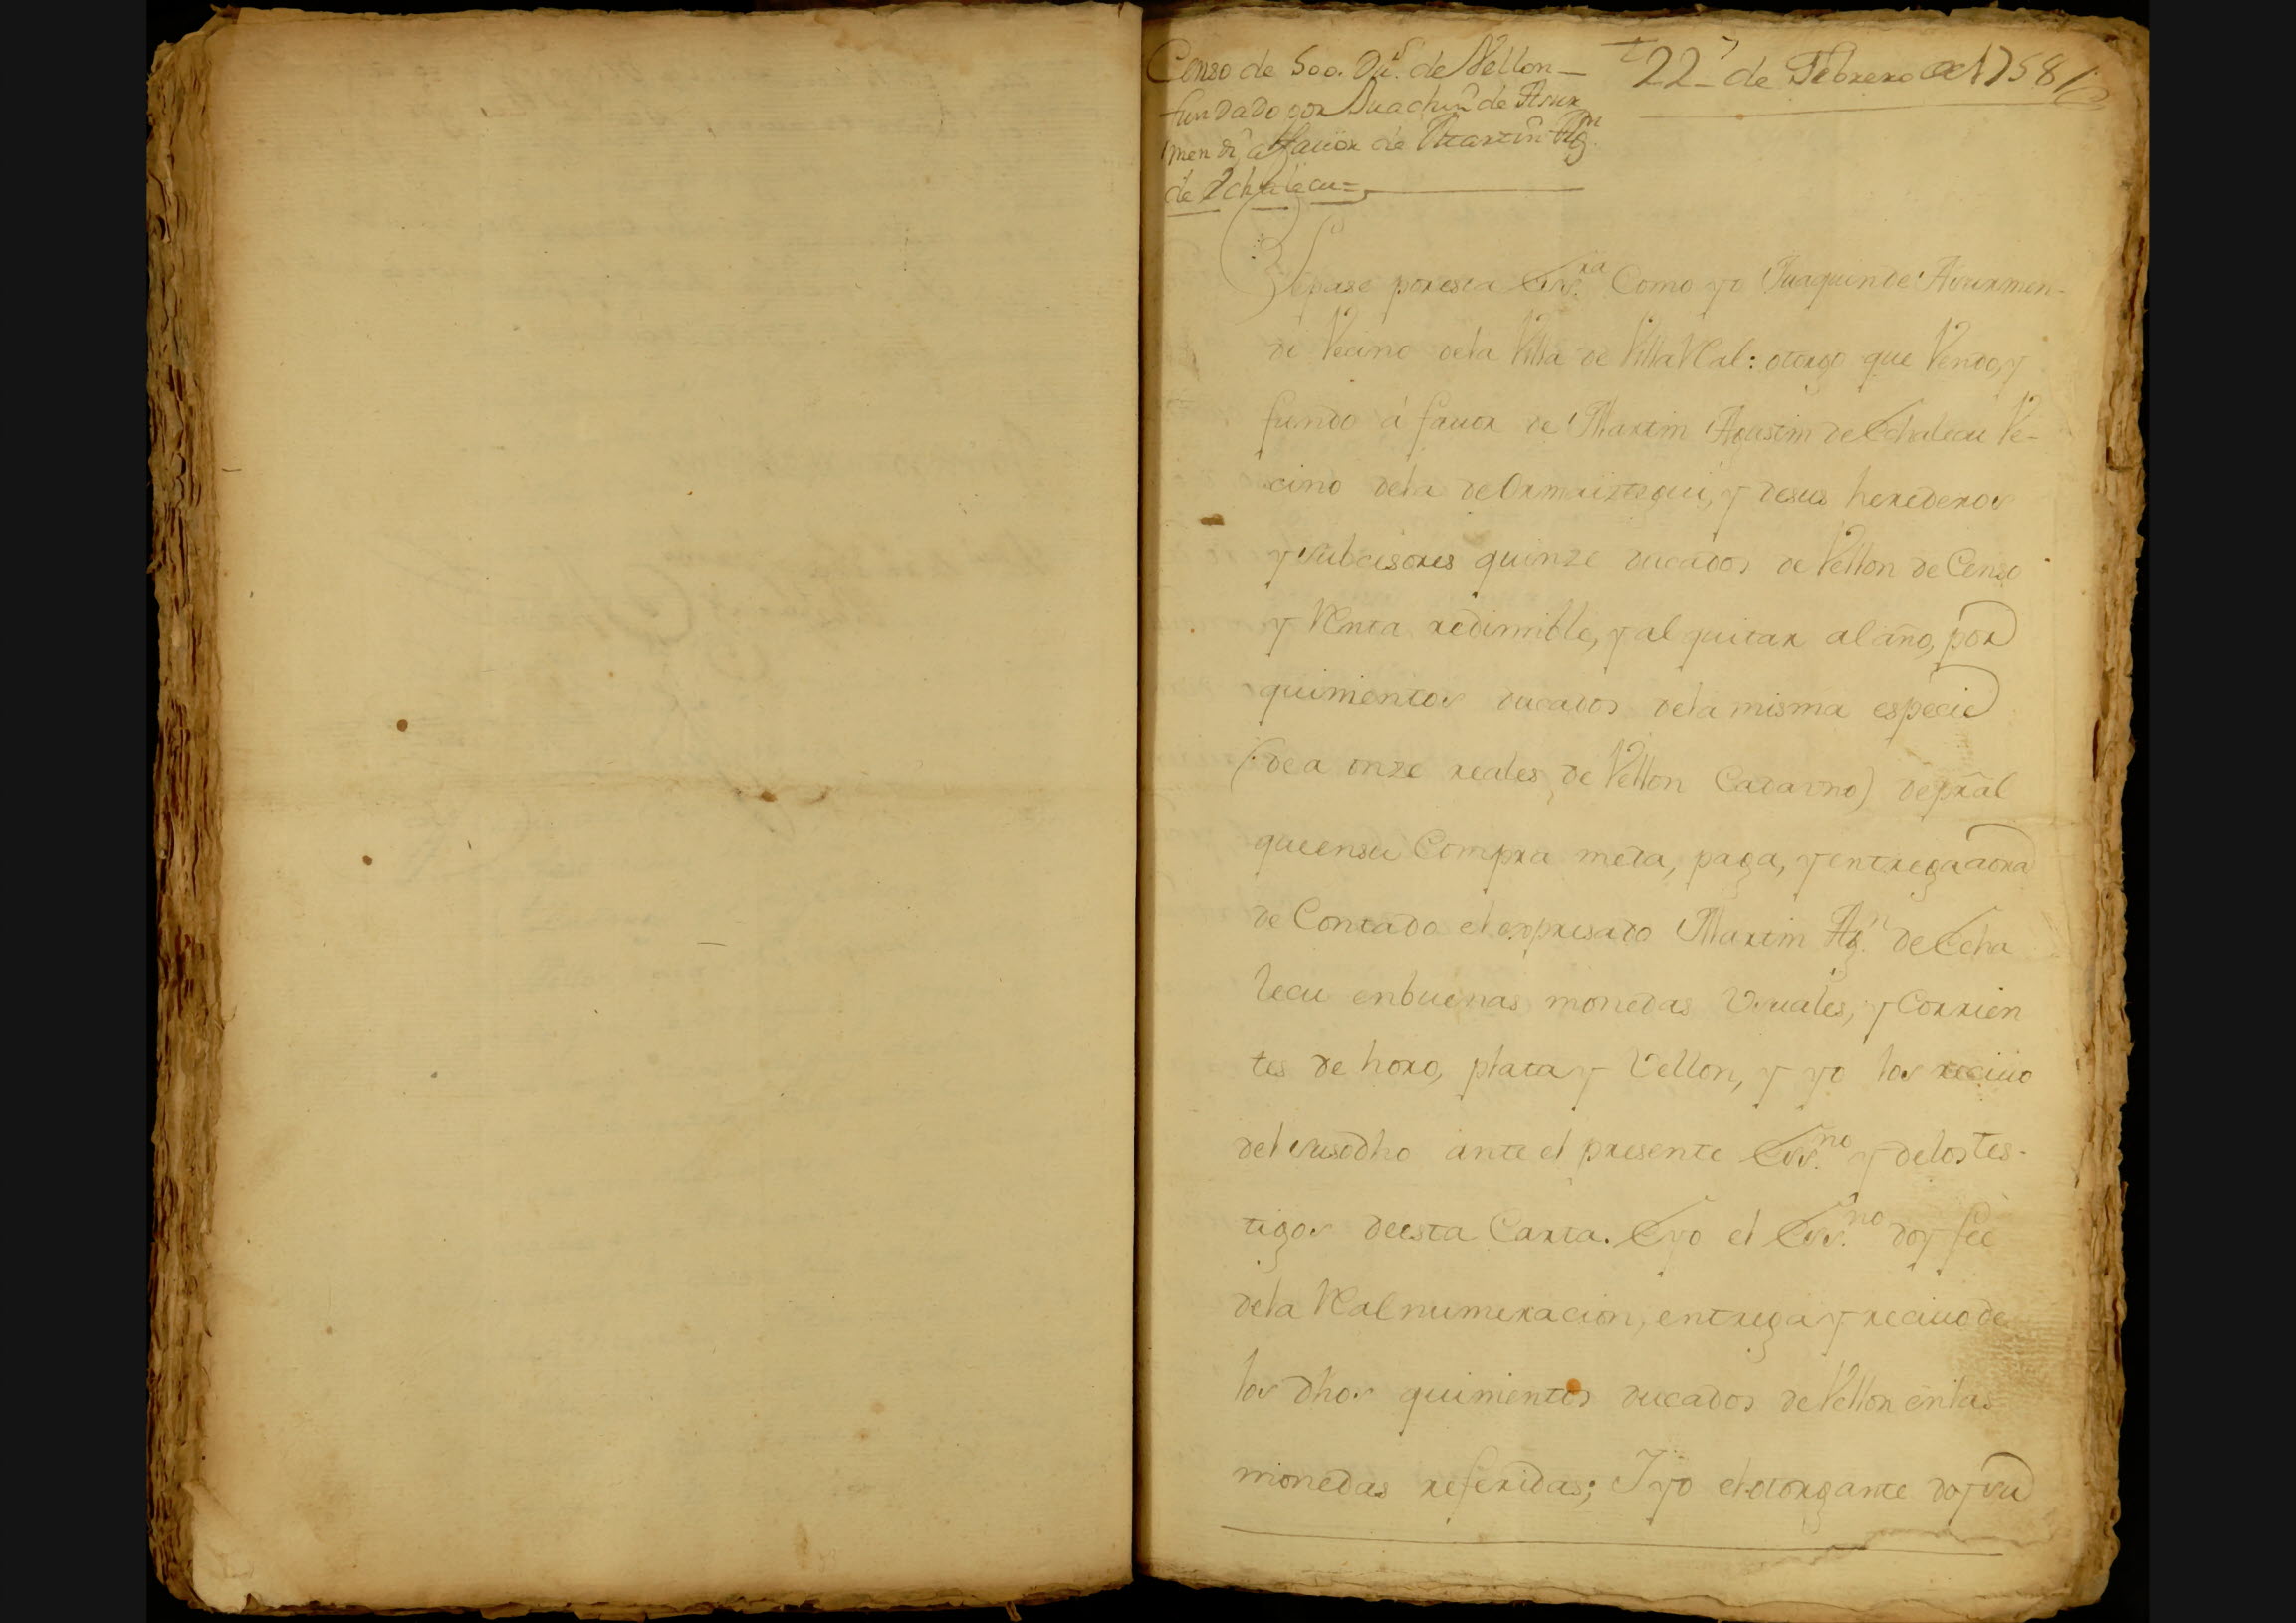 Censo de 500. Du.s de Vellon —
fundado por Juachin de Asur
mendi, a fauor de Martin Ag.n
de Echalecu =
22 de Febrero de 1758
Sepase por esta Ess.ra Como yo Juaquin de Asurmen-
di Vecino dela Villa de Villa Real: otorgo que Vendo, y
fundo á fauor de Martin Agustin de Echalecu Ve-
cino dela de Ormaiztegui, y desus herederos
y subcesores quinze ducados de Vellon de Censo
y Renta redimible, y al quitar al año, por
quinientos ducados dela misma especie
(de a onze reales de Vellon Cada vno) de pral
que ensu Compra meta, paga, y entrega aora
de Contado el expresado Martin Ag.n de Echa
lecu en buenas monedas Vsuales, y Corrien
tes de horo, plata y Vellon, y yo los reciuo
del susodho ante el presente Ess.no y delos tes-
tigos de esta Carta. E yo el Ess.no doy fee
dela Real numeracion, entrega y reciuo de
los dhos quinientos ducados de Vellon en las
monedas referidas; I yo el otorgante doy su